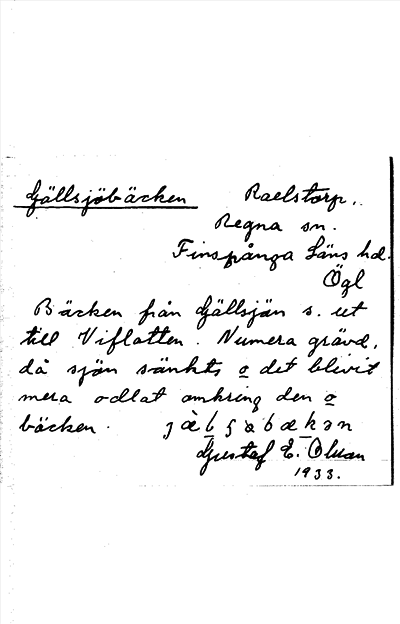 Gällsjöbäcken Raelstorp,
Regna sn.
Finspånga Läns hd.
Ögl
Bäcken från Gällsjön s. ut
till Viflotten. Numera grävd,
då sjön sänkts o det blivit
mera odlat omkring den o
bäcken.
Gustaf E. Olsson
1933.